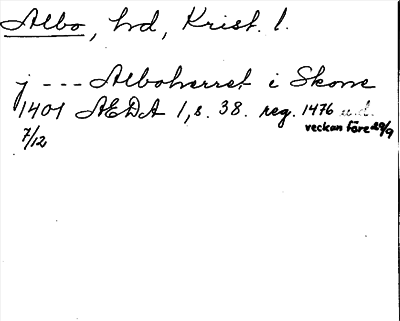 Albo, hd, Krist. l.
j --- Alboherret i Skone
1401 AEDA 1, s. 38. reg. 1476 u.d.
veckan före 29/9
7/12